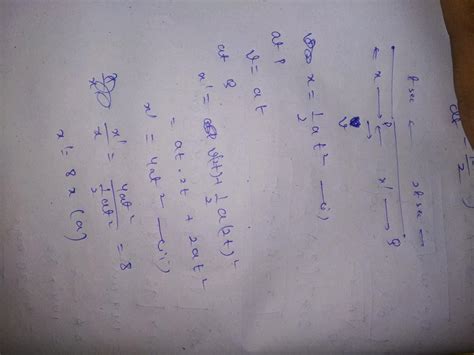 t sec ← 2t sec ←
← x → P ← x' → Q
v
x = 1/2 at² —(i)
at P
v = at
at Q
x' = v(2t) + 1/2 a(2t)²
= at · 2t + 2at²
x' = 4at² —(ii)
x'/x = 4at² / 1/2 at² = 8
x' = 8x (a)